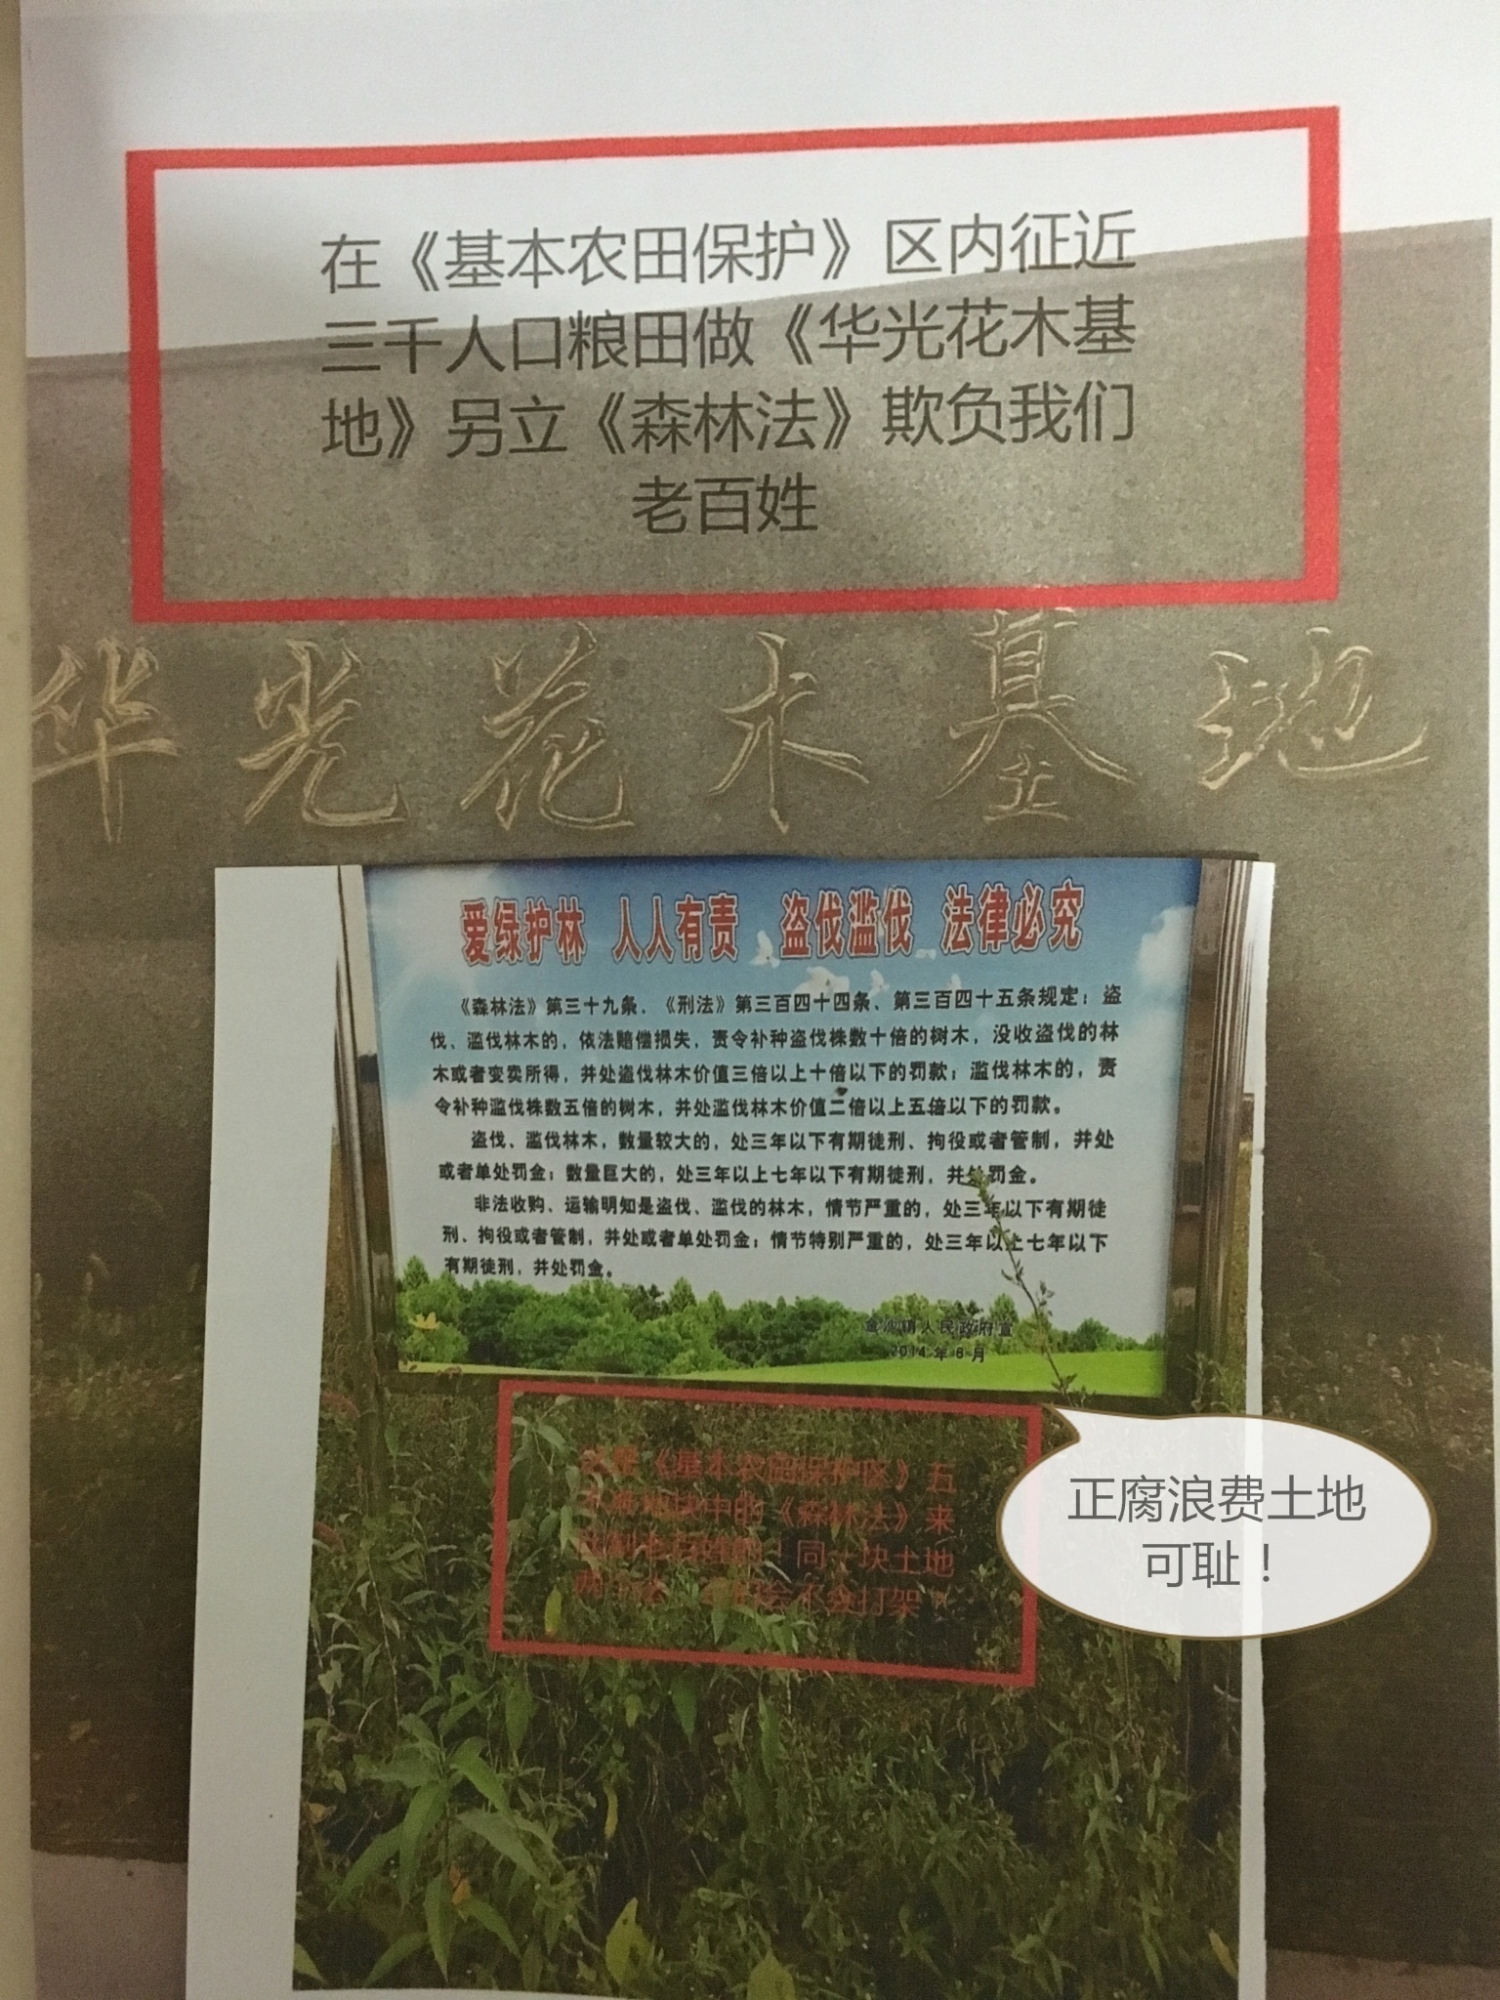 在《基本农田保护》区内征近
三千人口粮田做《华光花木基
地》另立《森林法》欺负我们
老百姓
华光花木基地
爱绿护林 人人有责 盗伐滥伐 法律必究
《森林法》第三十九条、《刑法》第三百四十四条、第三百四十五条规定：盗
伐、滥伐林木的，依法赔偿损失，责令补种盗伐株数十倍的树木，没收盗伐的林
木或者变卖所得，并处盗伐林木价值三倍以上十倍以下的罚款；滥伐林木的，责
令补种滥伐株数五倍的树木，并处滥伐林木价值二倍以上五倍以下的罚款。
盗伐、滥伐林木，数量较大的，处三年以下有期徒刑、拘役或者管制，并处
或者单处罚金；数量巨大的，处三年以上七年以下有期徒刑，并处罚金。
非法收购、运输明知是盗伐、滥伐的林木，情节严重的，处三年以下有期徒
刑、拘役或者管制，并处或者单处罚金；情节特别严重的，处三年以上七年以下
有期徒刑，并处罚金。
金沙镇人民政府宣
2014年8月
《基本农田保护区》五
地块中的《森林法》来
同一块土地
会不会打架
正腐浪费土地
可耻！